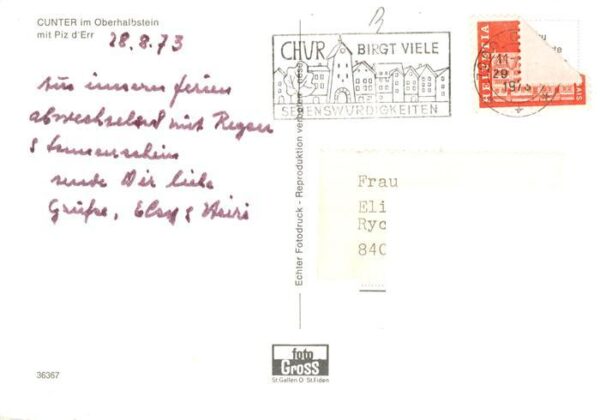 CUNTER im Oberhalbstein
mit Piz d'Err
28.8.73
Aus unsern Ferien
abwechselnd mit Regen
& Sonnenschein
sende Dir liebe
Grüsse, Elsy & Heiri
36367
Echter Fotodruck - Reproduktion verboten
foto
GROSS
St.Gallen O St.Fiden
CHUR BIRGT VIELE
SEHENSWÜRDIGKEITEN
HELVETIA
29
1973
Frau
Eli
Ryc
840